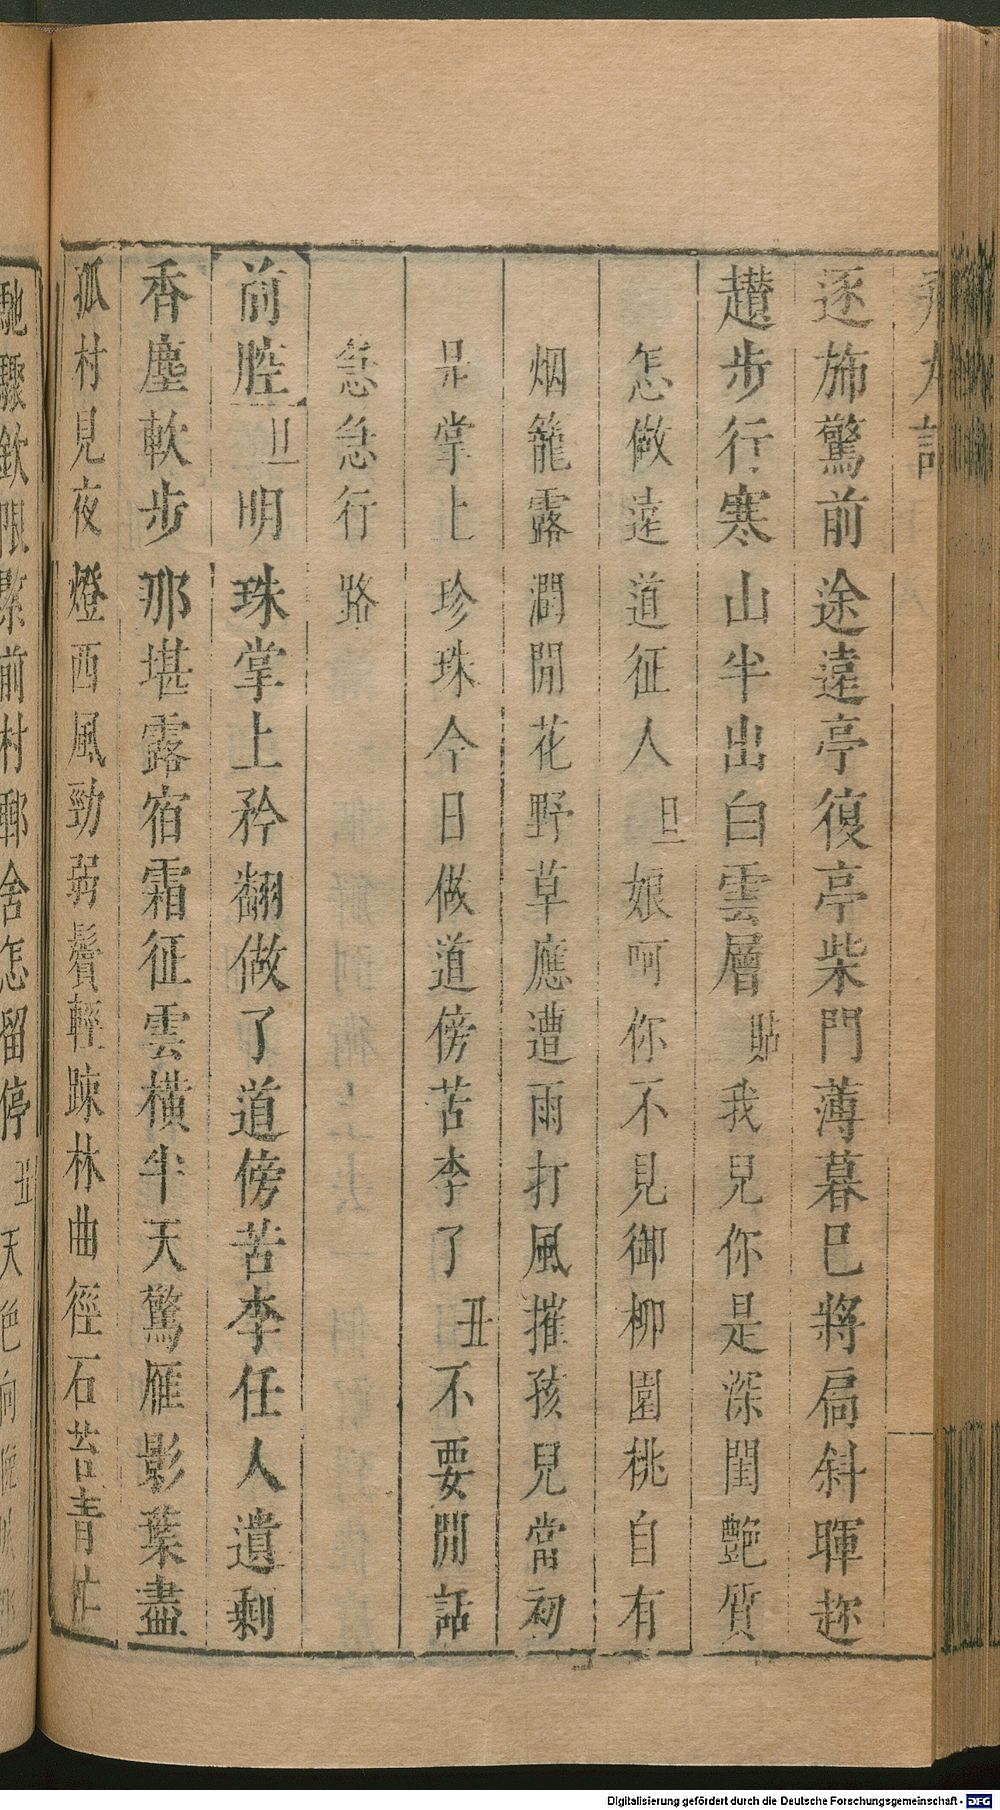 逐旆驚前途遠亭復亭柴門薄暮已將扃斜暉趂
趲步行寒山半出白雲層貼我見你是深閨艶質
怎做遠道征人旦娘呵你不見御柳園桃自有
烟籠露潤閒花野草應遭雨打風摧孩兒當初
是掌上珍珠今日做道傍苦李了丑不要閒話
急急行路
前腔旦明珠掌上矜翻做了道傍苦李任人遺剩
香塵軟步那堪露宿霜征雲橫半天驚雁影葉盡
孤村見夜燈西風勁弱鬢輕踈林曲徑石苔青忙
馳驟欽限緊前村郵舍怎留停丑天色向晚
Digitalisierung gefördert durch die Deutsche Forschungsgemeinschaft - DFG